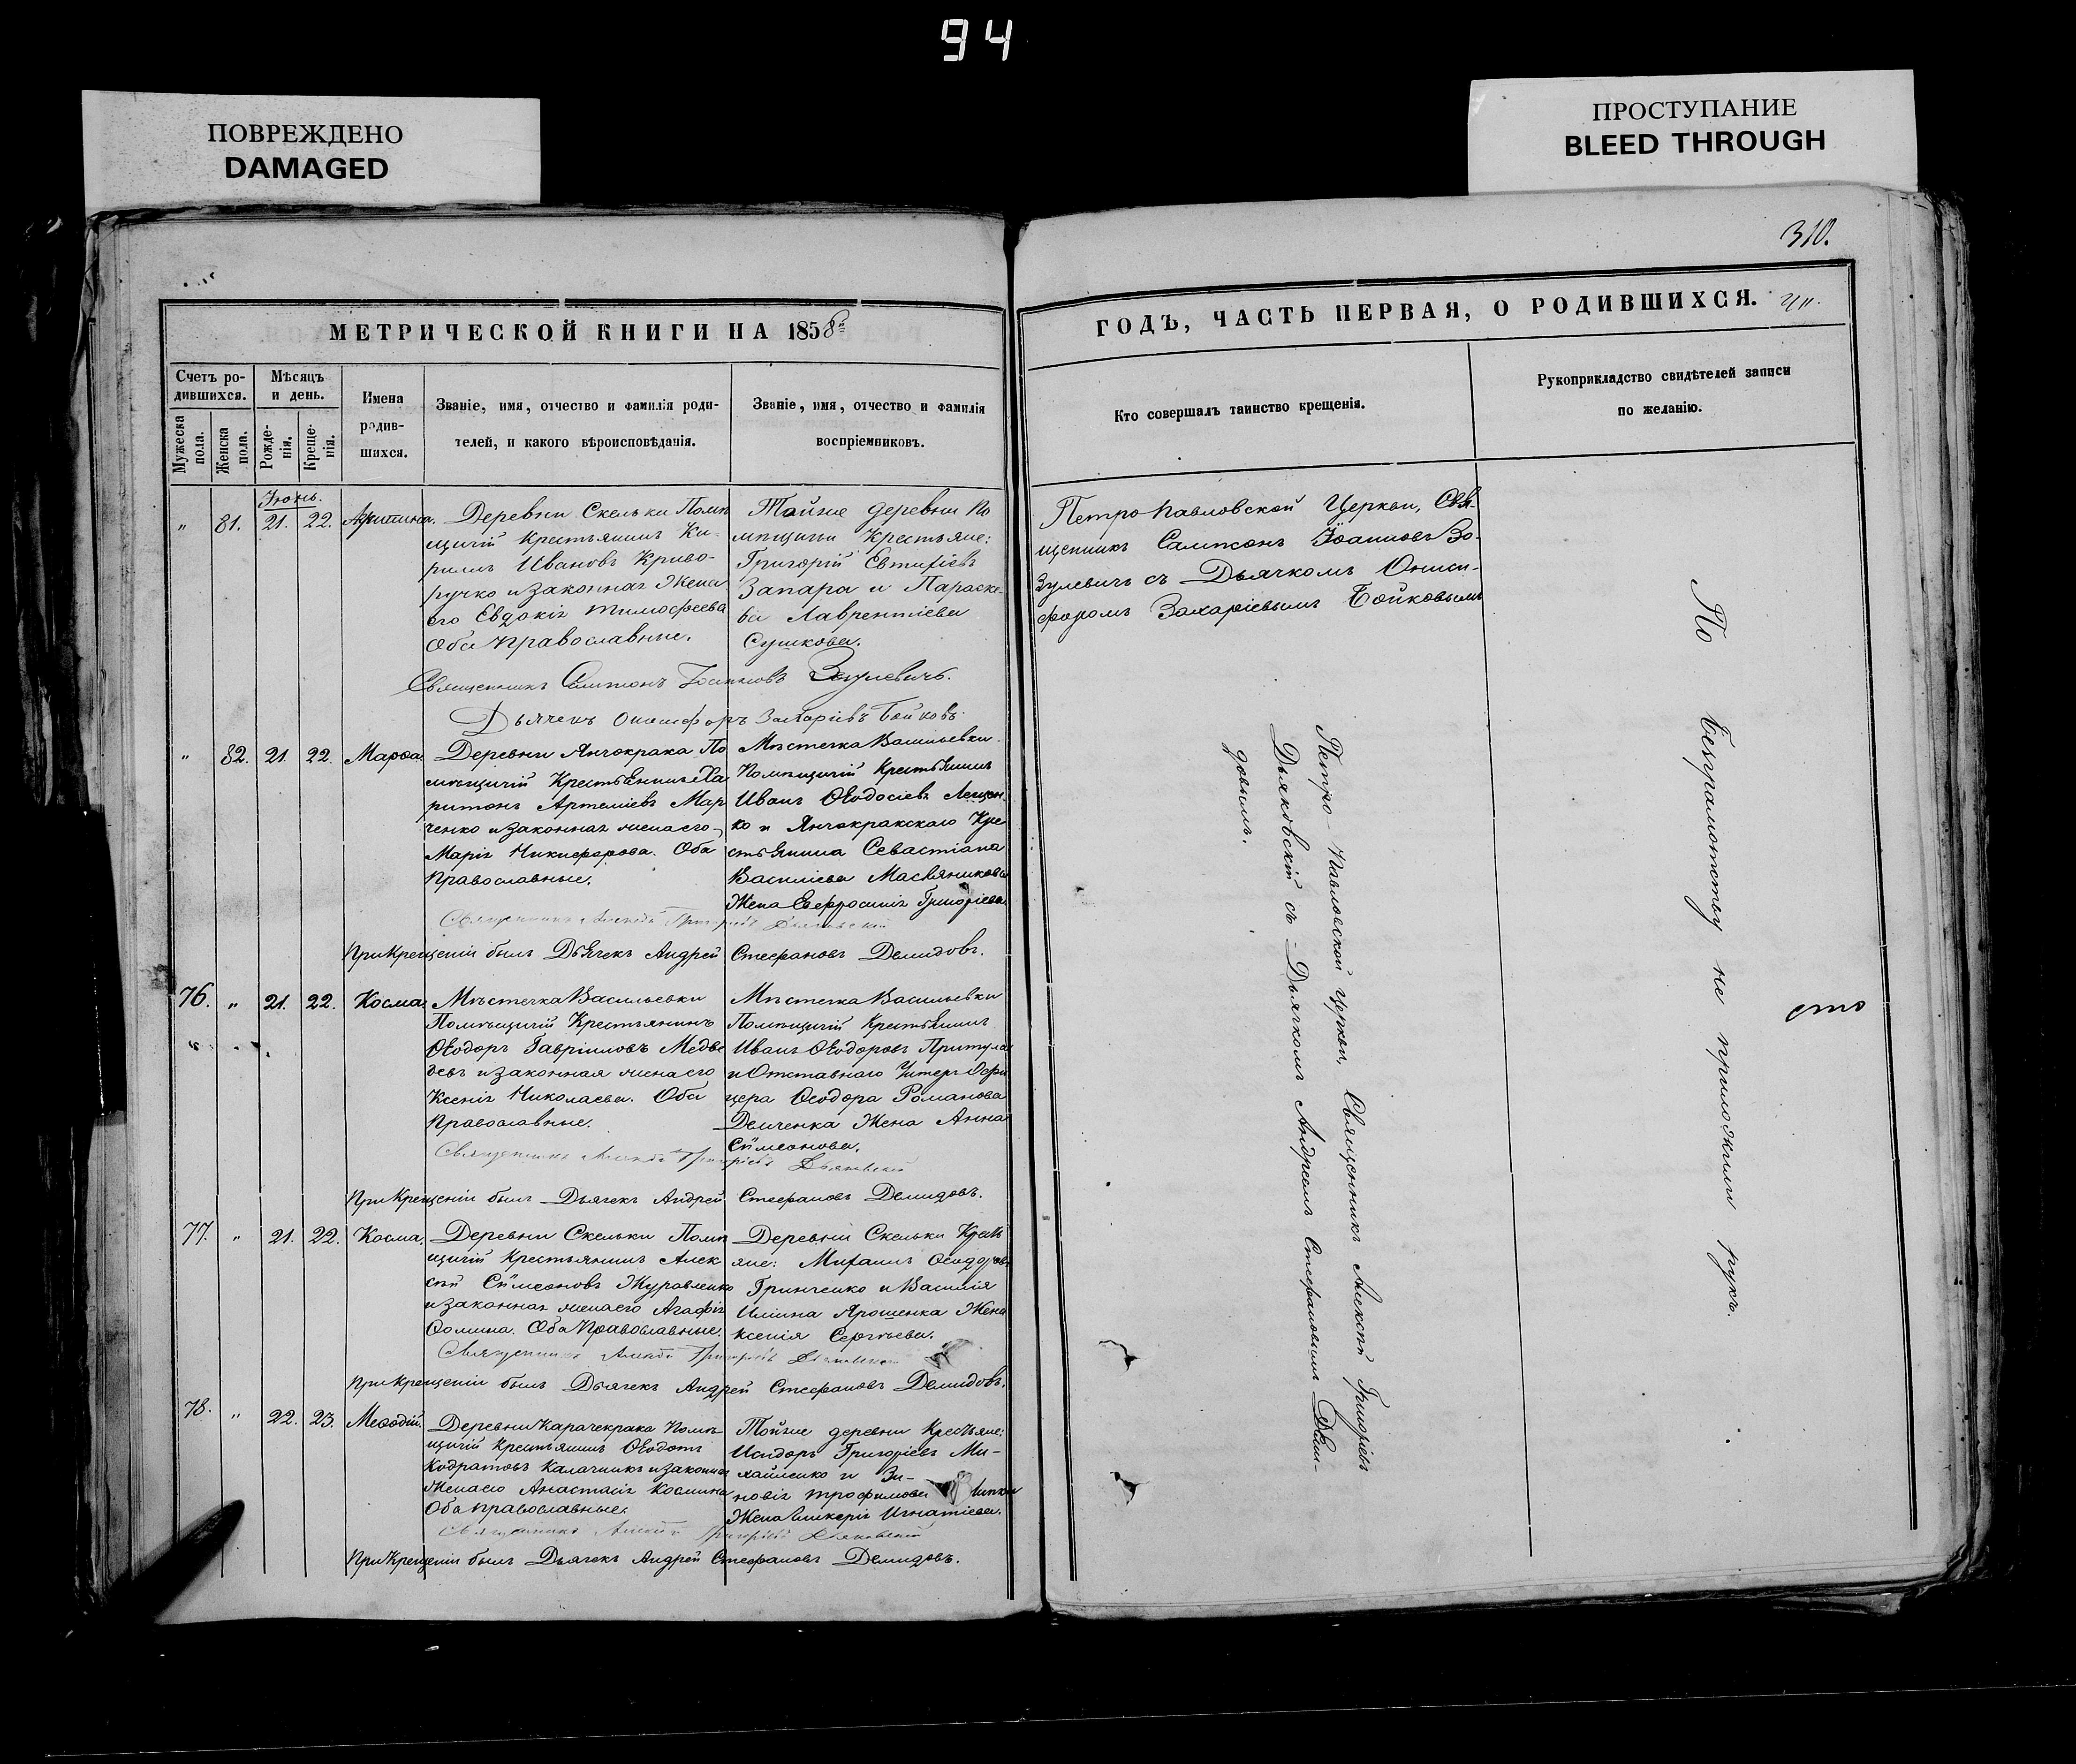 94
ПОВРЕЖДЕНО
DAMAGED
ПРОСТУПАНИЕ
BLEED THROUGH
310.
МЕТРИЧЕСКОЙ КНИГИ НА 1858
Счетъ ро-
дившихся.
Мужеска
пола.
Женска
пола.
Мѣсяцъ
и день.
Рожде-
нія.
Креще-
нія.
Имена
родив-
шихся.
Званіе, имя, отчество и фамилія роди-
телей, и какого вѣроисповѣданія.
Званіе, имя, отчество и фамилія
воспріемниковъ.
Іюнь.
" 81. 21. 22.
Деревни Скельки Помѣ
щичій Крестьянинъ Ки-
рилъ Ивановъ Криво-
ручко и законная Жена
его Евдокія Тимофеева
Оба Православные.
Тойже деревни По
мѣщичьи Крестьяне:
Григорій Евтихіевъ
Запара и Параске-
ва Лаврентіева
Сушкова.
Священникъ Сампсонъ Іоанновъ Зозулевичъ.
Дьячекъ Онисифоръ Захаріевъ Бойковъ.
" 82. 21. 22. Марѳа.
Деревни Янчокрака По
мѣщичій Крестьянинъ Ха
ритонъ Артеміевъ Мар
ченко и законная жена его
Марія Никифорова. Оба
Православные.
Мѣстечка Васильевки
Помѣщичій Крестьянинъ
Иванъ Ѳеодосіевъ Лещен-
ко и Янчокракскаго Кре
стьянина Севастіана
Василіева Масляникова
Жена Евфросинія Григоріева
Священникъ Алексѣй Григоріевъ Дьяковскій
При Крещеніи былъ Дьячекъ Андрей Стефановъ Демидовъ.
76. " 21. 22. Косма.
Мѣстечка Васильевки
Помѣщичій Крестьянинъ
Ѳеодоръ Гавріиловъ Медве
девъ и законная жена его
Ксенія Николаева. Оба
Православные.
Мѣстечка Васильевки
Помѣщичій Крестьянинъ
Иванъ Ѳеодоровъ Притула
и Отставнаго Унтеръ Офи
цера Ѳеодора Романова
Демченка Жена Анна
Сѵмеонова.
Священникъ Алексѣй Григоріевъ Дьяковскій
При Крещеніи былъ Дьячекъ Андрей Стефановъ Демидовъ.
77. " 21. 22. Косма.
Деревни Скельки Помѣ
щичій Крестьянинъ Алек
сѣй Сѵмеоновъ Журавленко
и законная жена его Агафія
Ѳомина. Оба Православные.
Деревни Скельки Крестъ
яне: Михаилъ Ѳеодоровъ
Гринченко и Василія
Иліина Ярошенка Жена
Ксенія Сергѣева.
Священникъ Алексѣй Григоріевъ Дьяковскій
При Крещеніи былъ Дьячекъ Андрей Стефановъ Демидовъ.
78. " 22. 23. Меѳодій.
Деревни Карачекрака Помѣ-
щичій Крестьянинъ Ѳеодотъ
Кодратовъ Калачникъ и законная
Жена его Анастасія Космина
Оба Православные.
Тойже деревни Крестьяне:
Исидоръ Григоріевъ Ми-
хайленко и Зи-
новія Трофимова
Жена Гликерія Игнатіева.
Священникъ Алексѣй Григоріевъ Дьяковскій
При Крещеніи былъ Дьячекъ Андрей Стефановъ Демидовъ.
ГОДЪ, ЧАСТЬ ПЕРВАЯ, О РОДИВШИХСЯ.
Кто совершалъ таинство крещенія.
Рукоприкладство свидѣтелей записи
по желанію.
Петро-Павловской Церкви, Свя-
щенникъ Сампсонъ Іоанновъ Зо-
зулевичъ съ Дьячкомъ Ониси-
форомъ Захаріевымъ Бойковымъ
Петро-Павловской церкви, Священникъ Алексѣй Григоріевъ
Дьяковскій съ Дьячкомъ Андреемъ Стефановымъ Деми-
довымъ.
По безграмотству не приложили рукъ.
сто